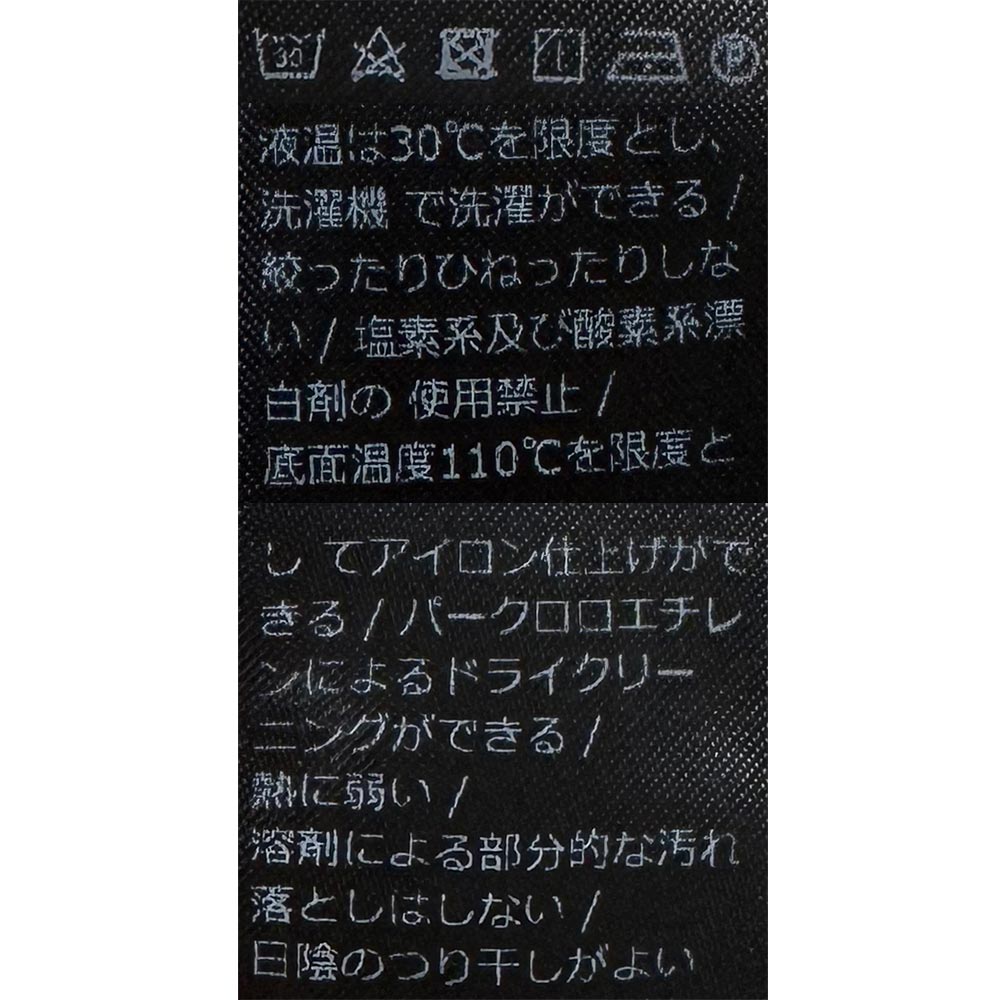 30
P
液温は30℃を限度とし、
洗濯機 で洗濯ができる /
絞ったりひねったりしな
い / 塩素系及び酸素系漂
白剤の 使用禁止 /
底面温度110℃を限度と
し てアイロン仕上げがで
きる / パークロロエチレ
ンによるドライクリー
ニングができる /
熱に弱い /
溶剤による部分的な汚れ
落としはしない /
日陰のつり干しがよい